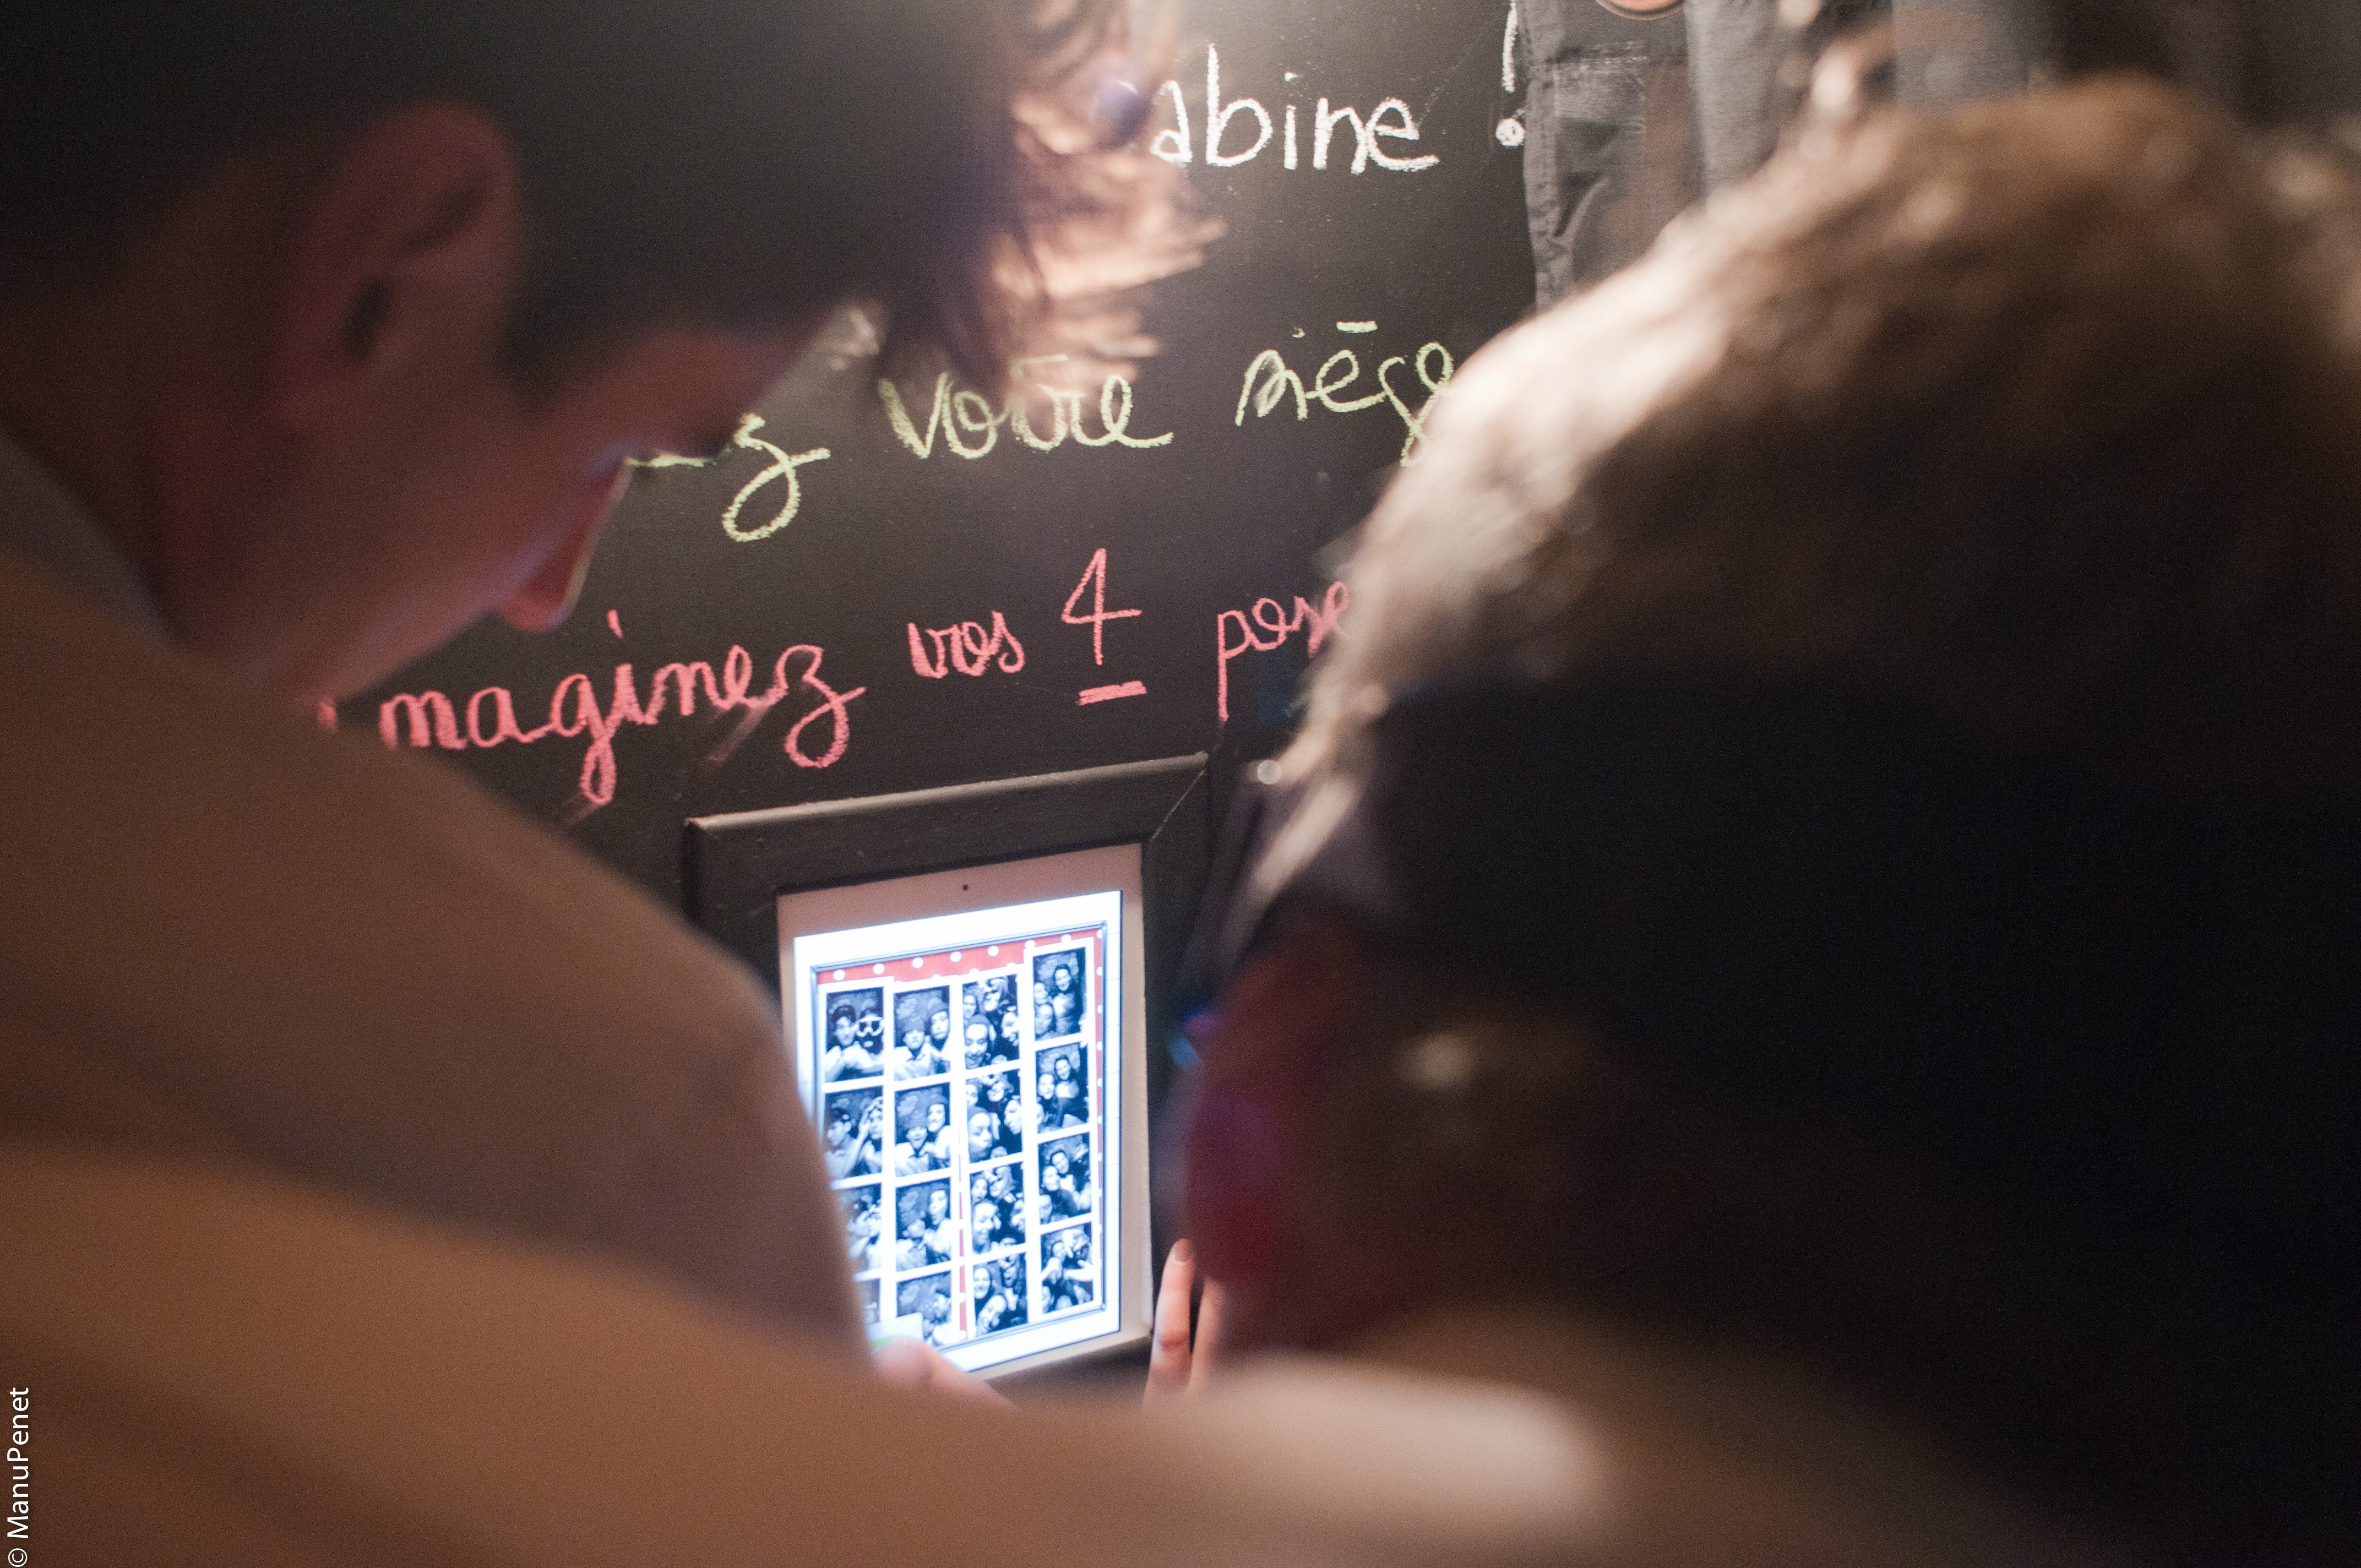 abine !
ez votre siège
imaginez vos 4 pose
© ManuPenet